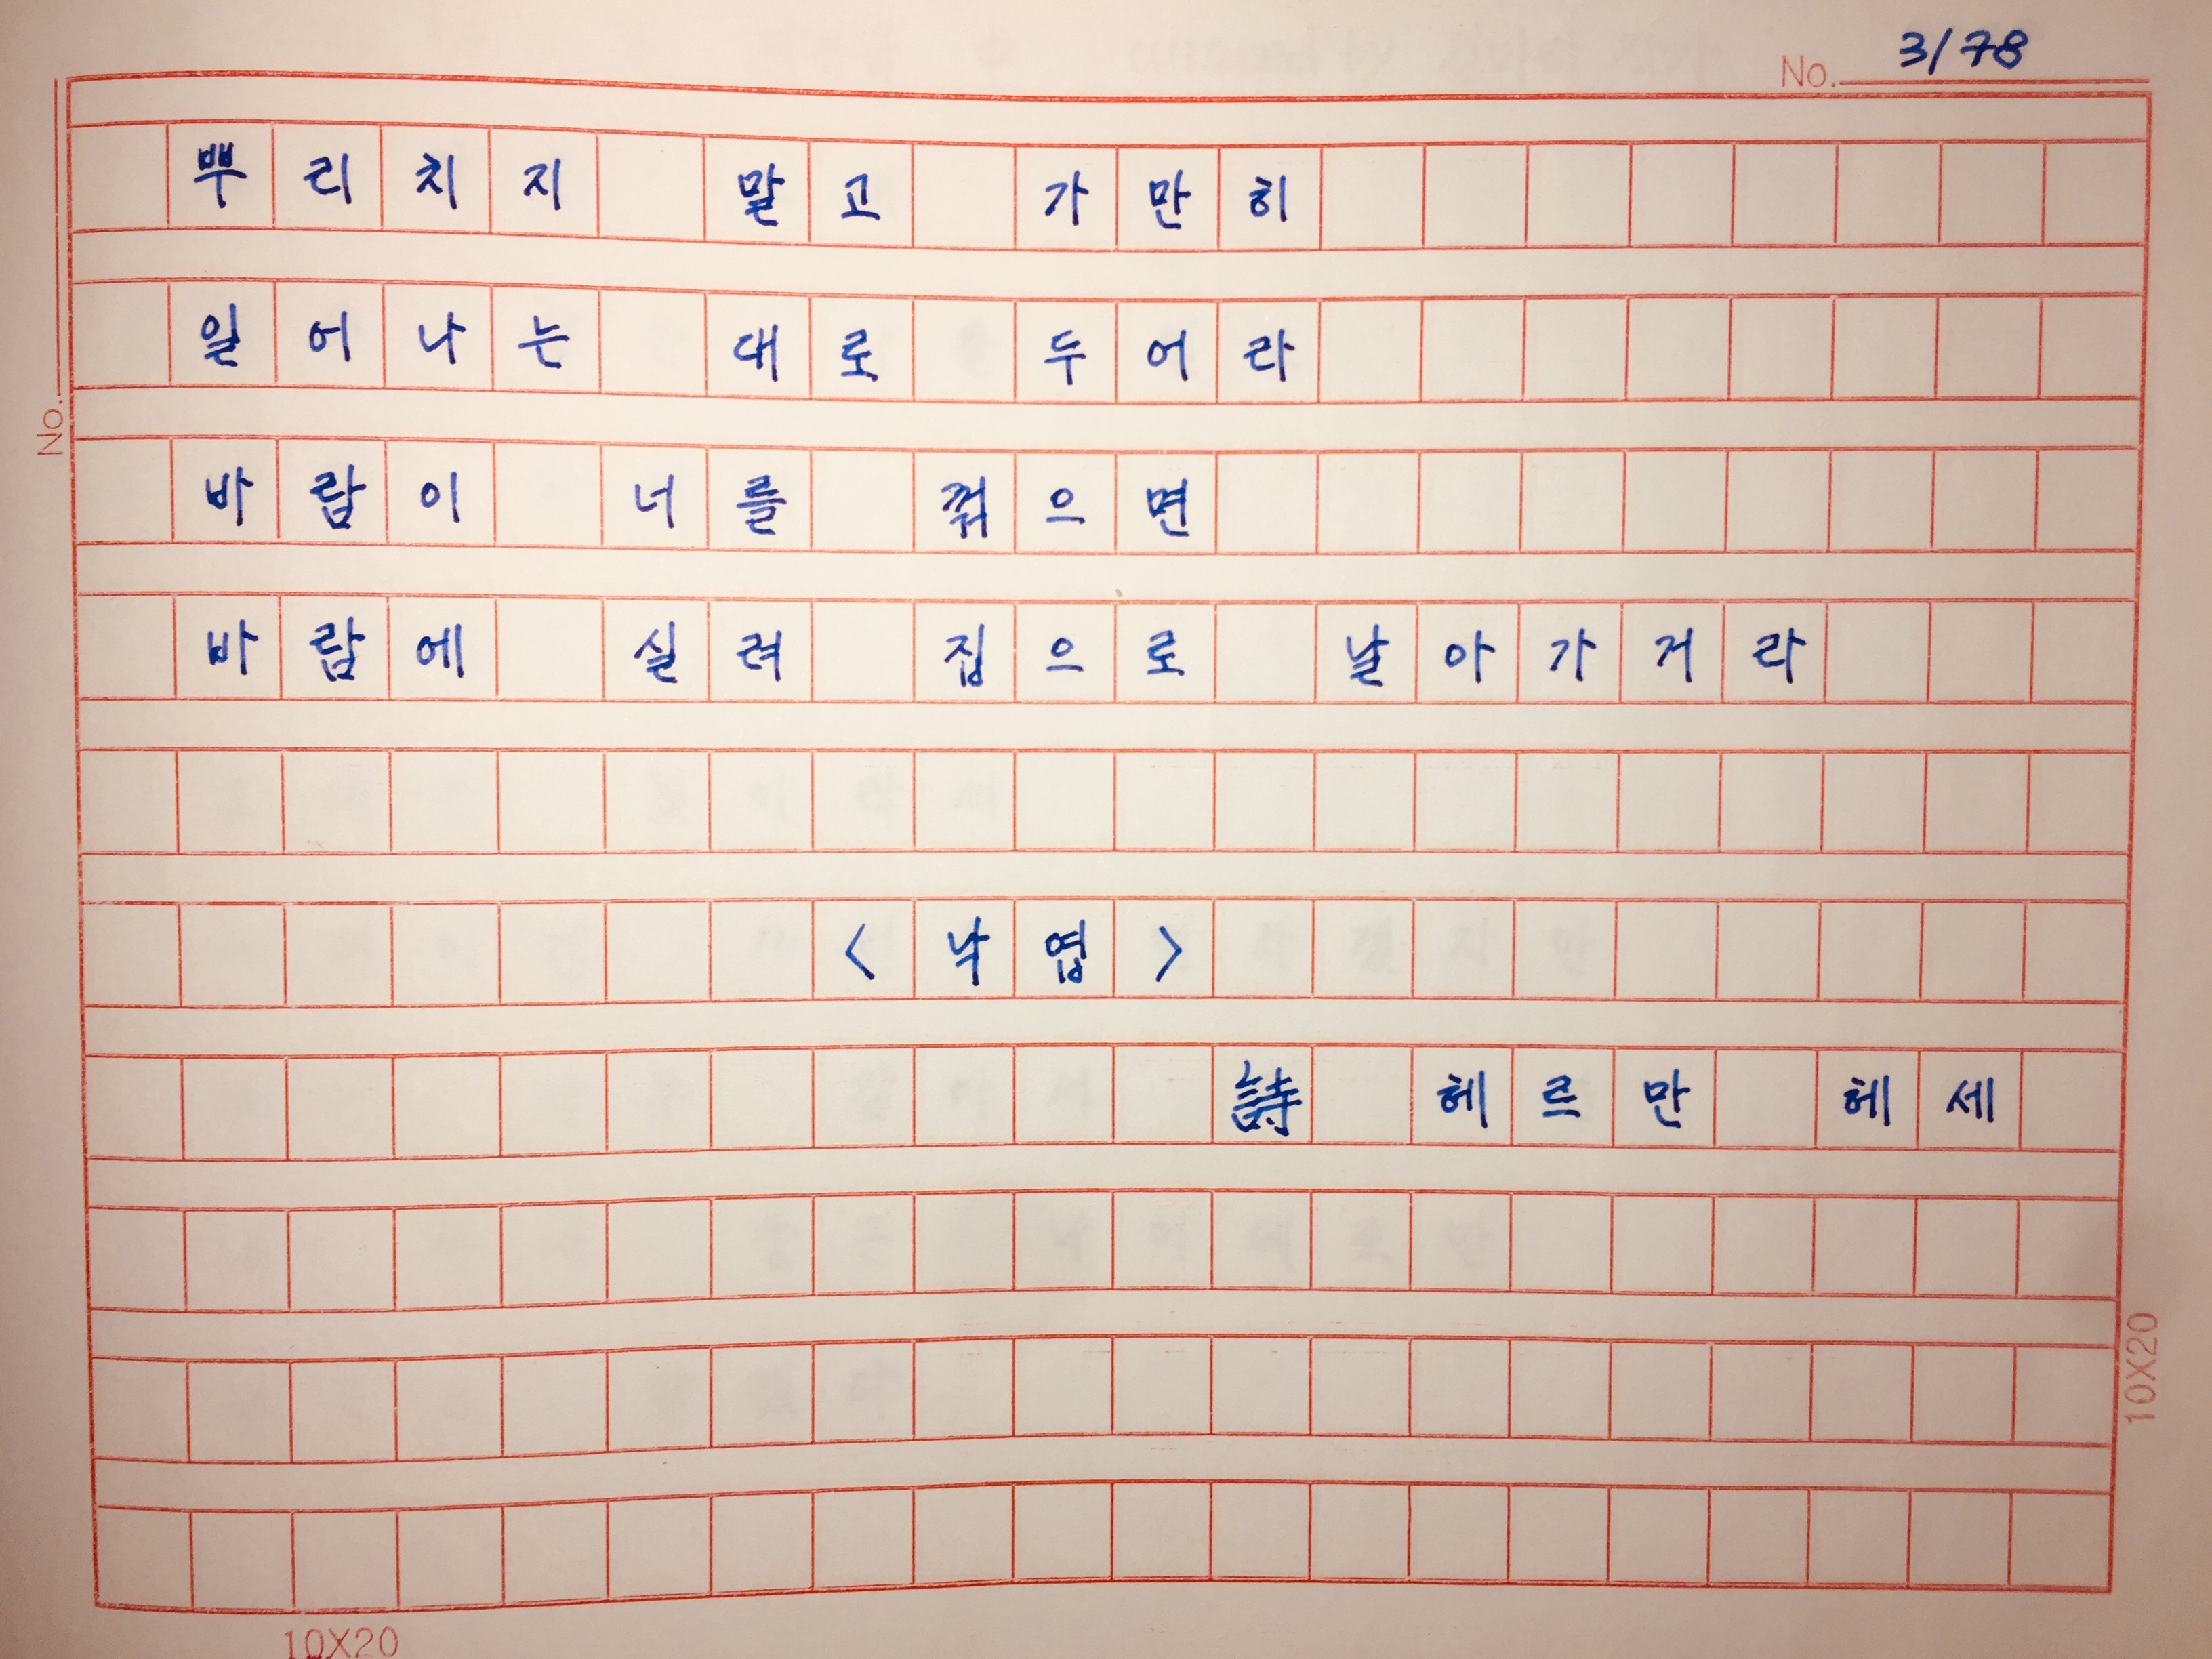 No. 3/78
뿌리치지 말고 가만히
일어나는 대로 두어라
No.
바람이 너를 꺾으면
바람에 실려 집으로 날아가거라
<낙엽>
詩 헤르만 헤세
10X20
10X20